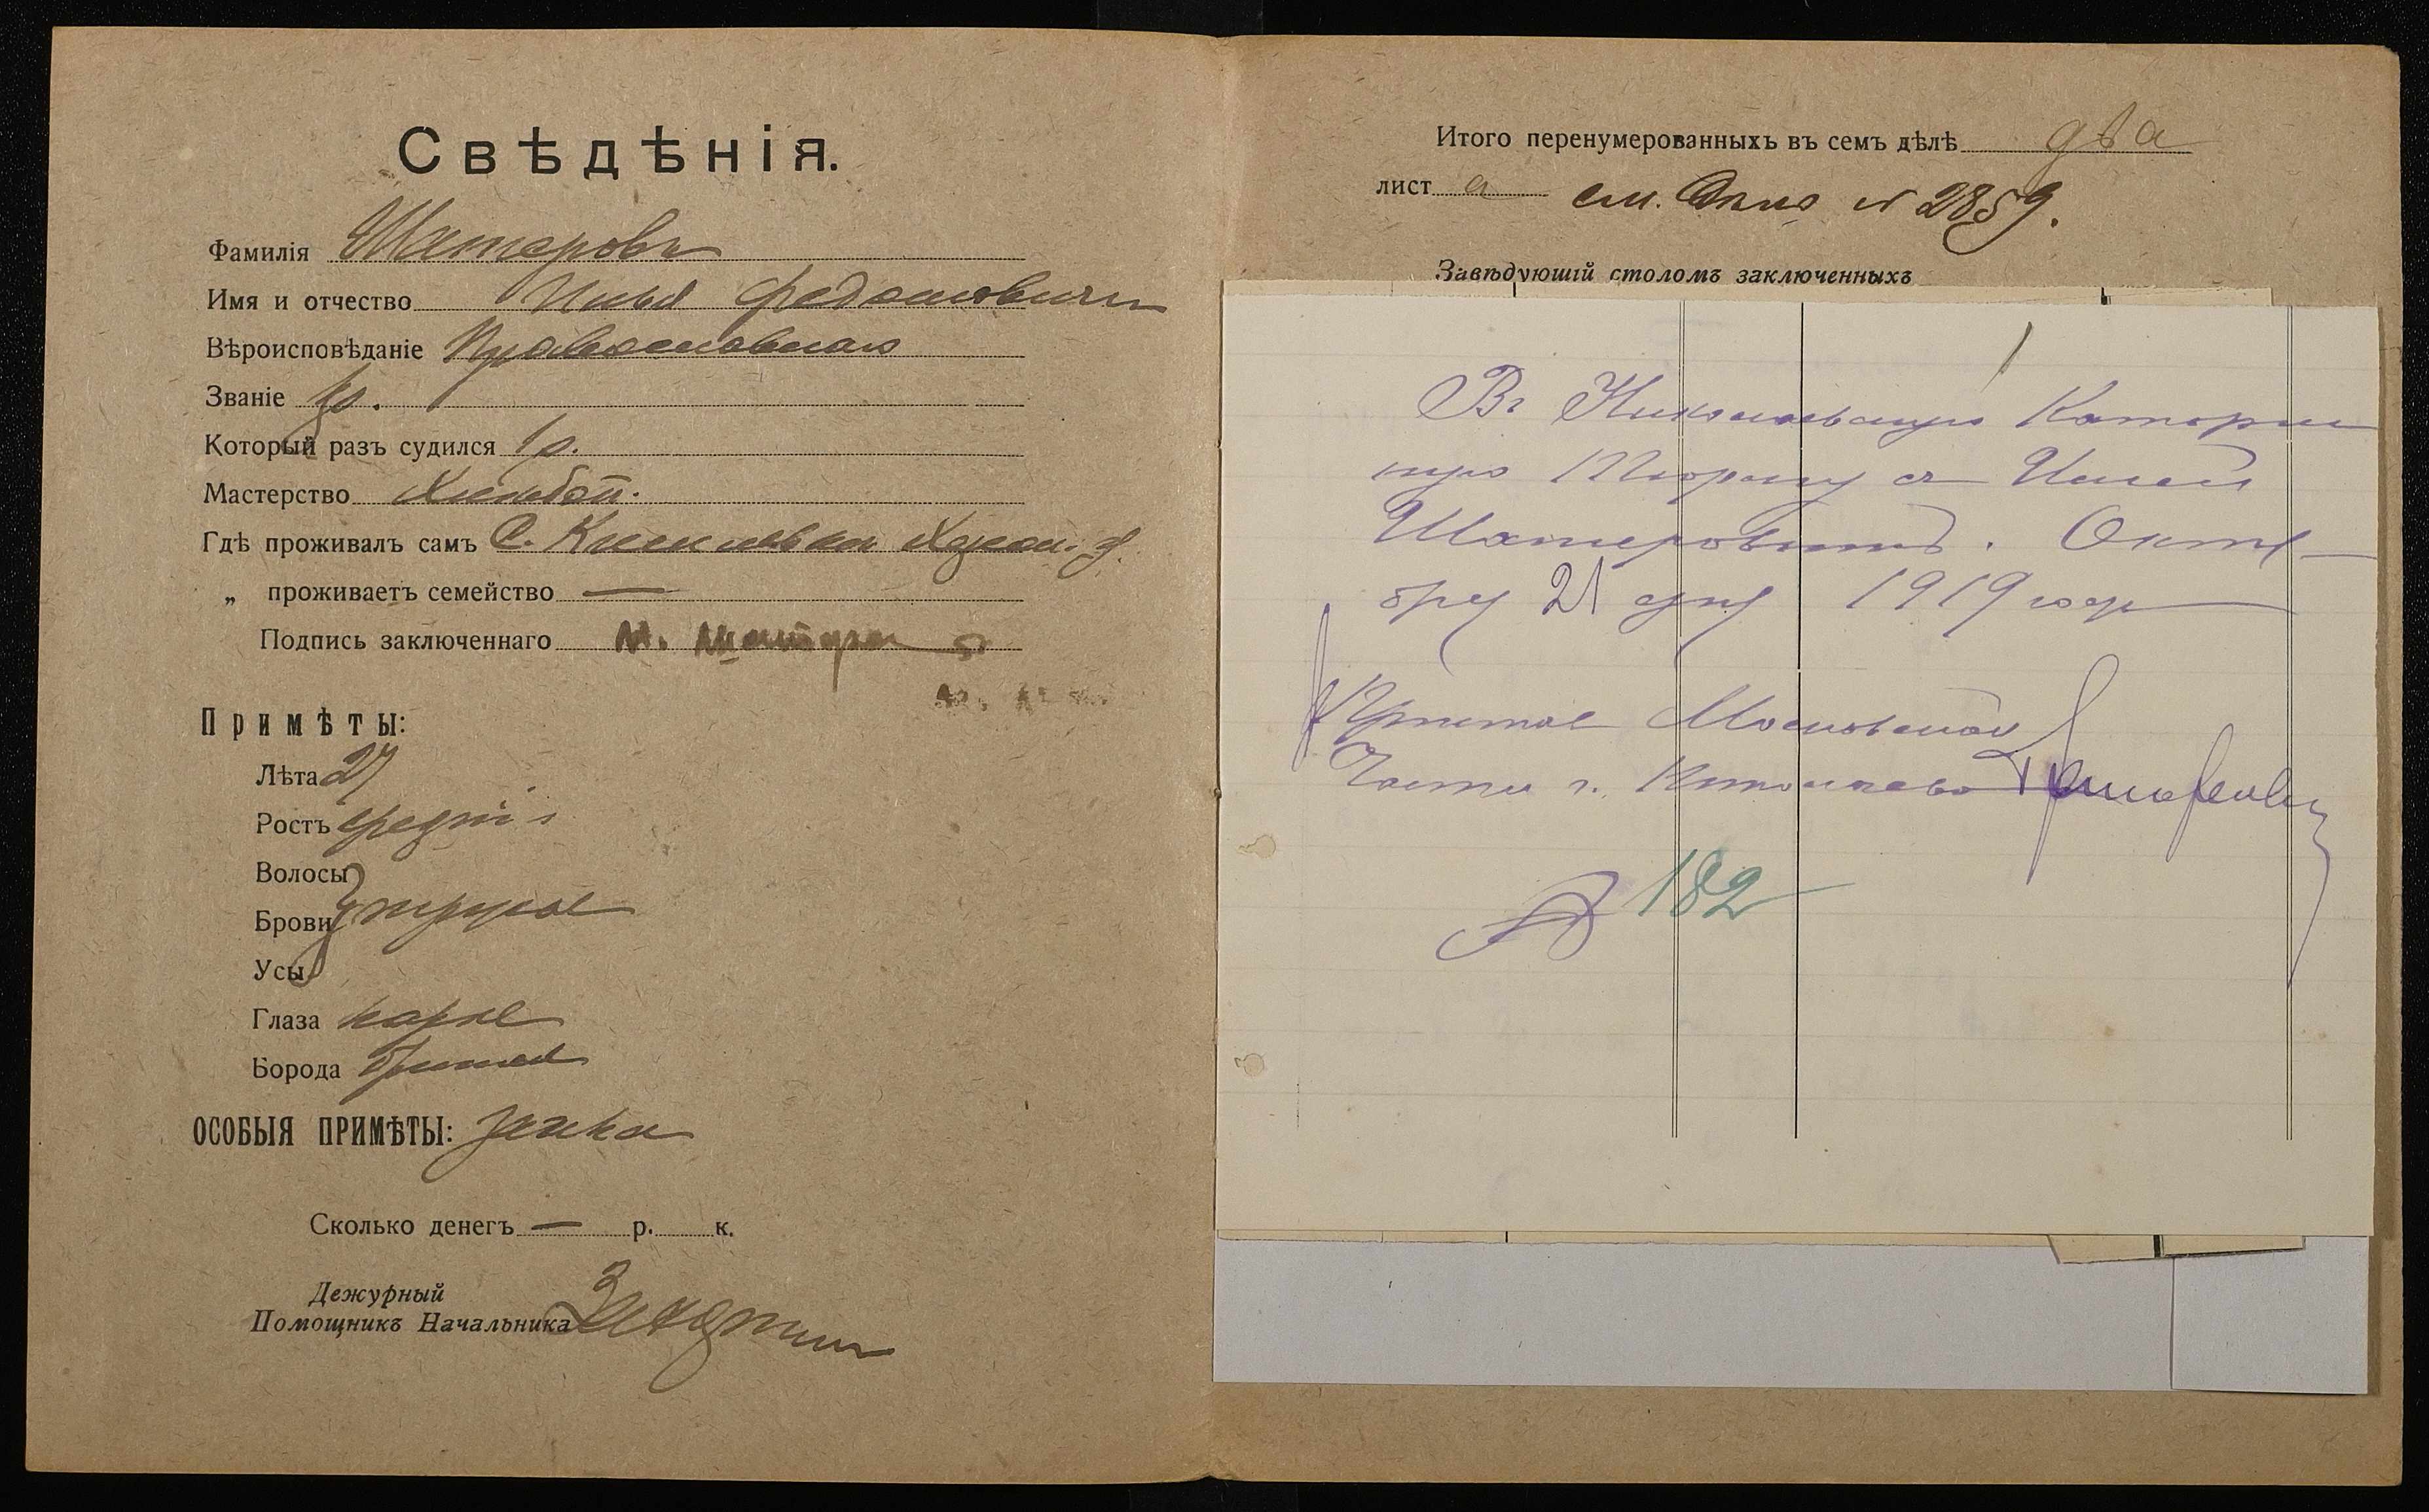 Свѣдѣнія.
Фамилія Шатеровъ
Имя и отчество Илья
Вѣроисповѣданіе Православнаго
Званіе кр.
Который разъ судился 1 р.
Мастерство Хлѣбоп.
Гдѣ проживалъ самъ С. Херсон. у.
„ проживаетъ семейство —
Подпись заключеннаго
Примѣты:
Лѣта 27
Ростъ средній
Волосы
Брови } т русые
Усы
Глаза каріе
Борода бритая
ОСОБЫЯ ПРИМѢТЫ:
Сколько денегъ — р. к.
Дежурный
Помощникъ Начальника
Итого перенумерованныхъ въ семъ дѣлѣ два
лист а см. Дѣло № 2859.
Завѣдующій столомъ заключенныхъ
1
Въ Николаевскую Каторж
ную Тюрьму съ Ильей
Шатеровымъ. Октя-
бря 21 дня 1919 года
Приставъ Московской
Части г. Николаева
182